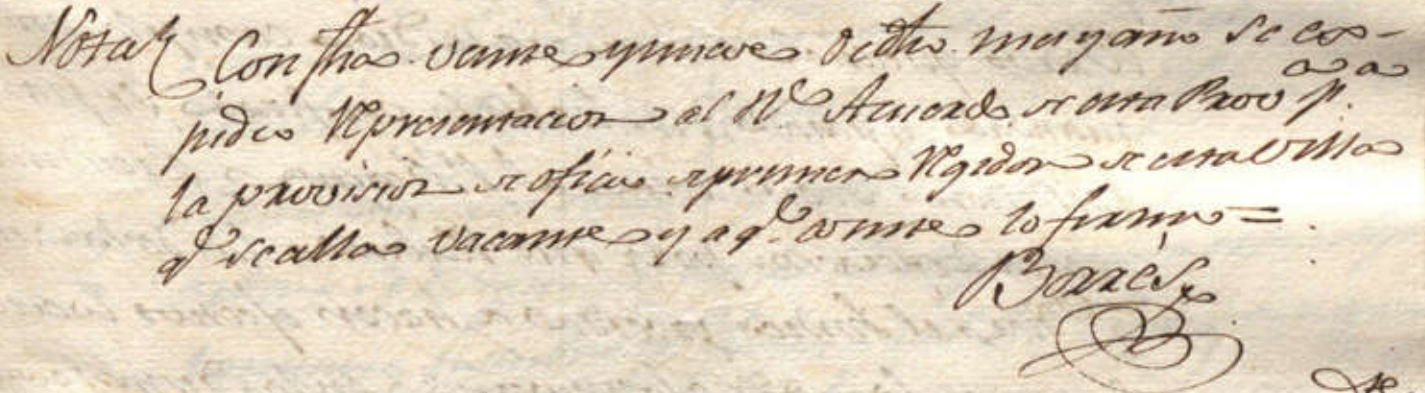 Nota Con fha. veinte y nueve de dho. mes y año se es-
pidió Representacion al Rl. Acuerdo de esta Prova. pa.
la provision de oficio de primer Regidor de esta Villa
qe. se alla vacante y a qe. conste lo firmo =
Borrés